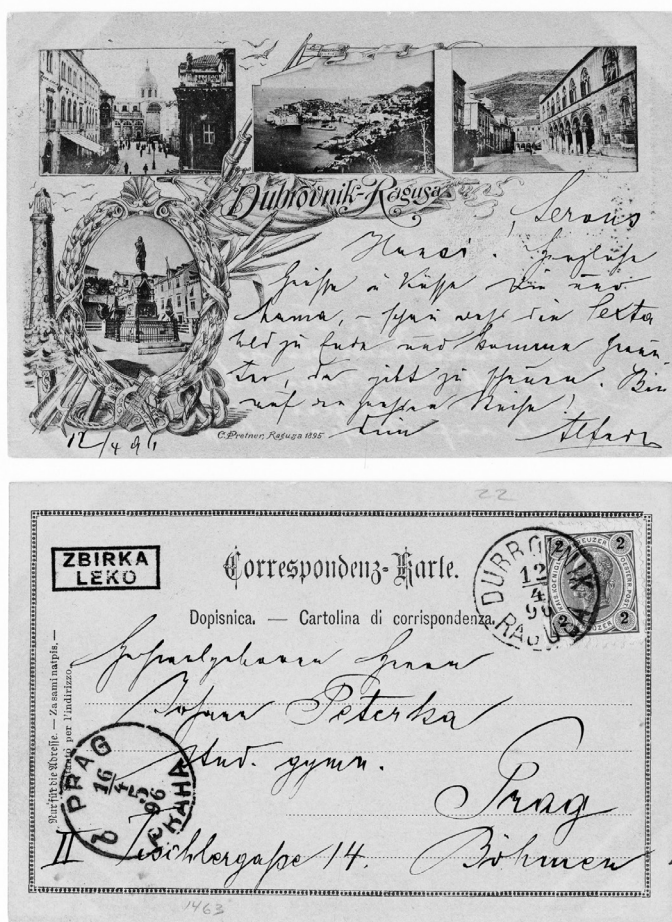 Dubrovnik-Ragusa
Servus
Hansi. Herzliche
Grüße u Küsse Dir und
Mama, – schau daß die Sexta
bald zu Ende und komme
da gibt zu schauen. Bin
auf der großen Reise!
Dein
12/4 96
C. Pretner, Ragusa 1895
22
ZBIRKA
LEKO
Correspondenz-Karte.
Dopisnica. — Cartolina di corrispondenza.
DUBROVNIK
12
4
96
RAGUSA
2 KREUZER 2
2 KREUZER 2
Nur für die Adresse. — Za sami natpis. —
Soltanto per l'indirizzo.
Hochwolgeboren Herrn
Johann Peterka
stud. gymn.
Prag
II Tischlergaße 14. Böhmen
PRAG
16
4
5
96
PRAHA
1463